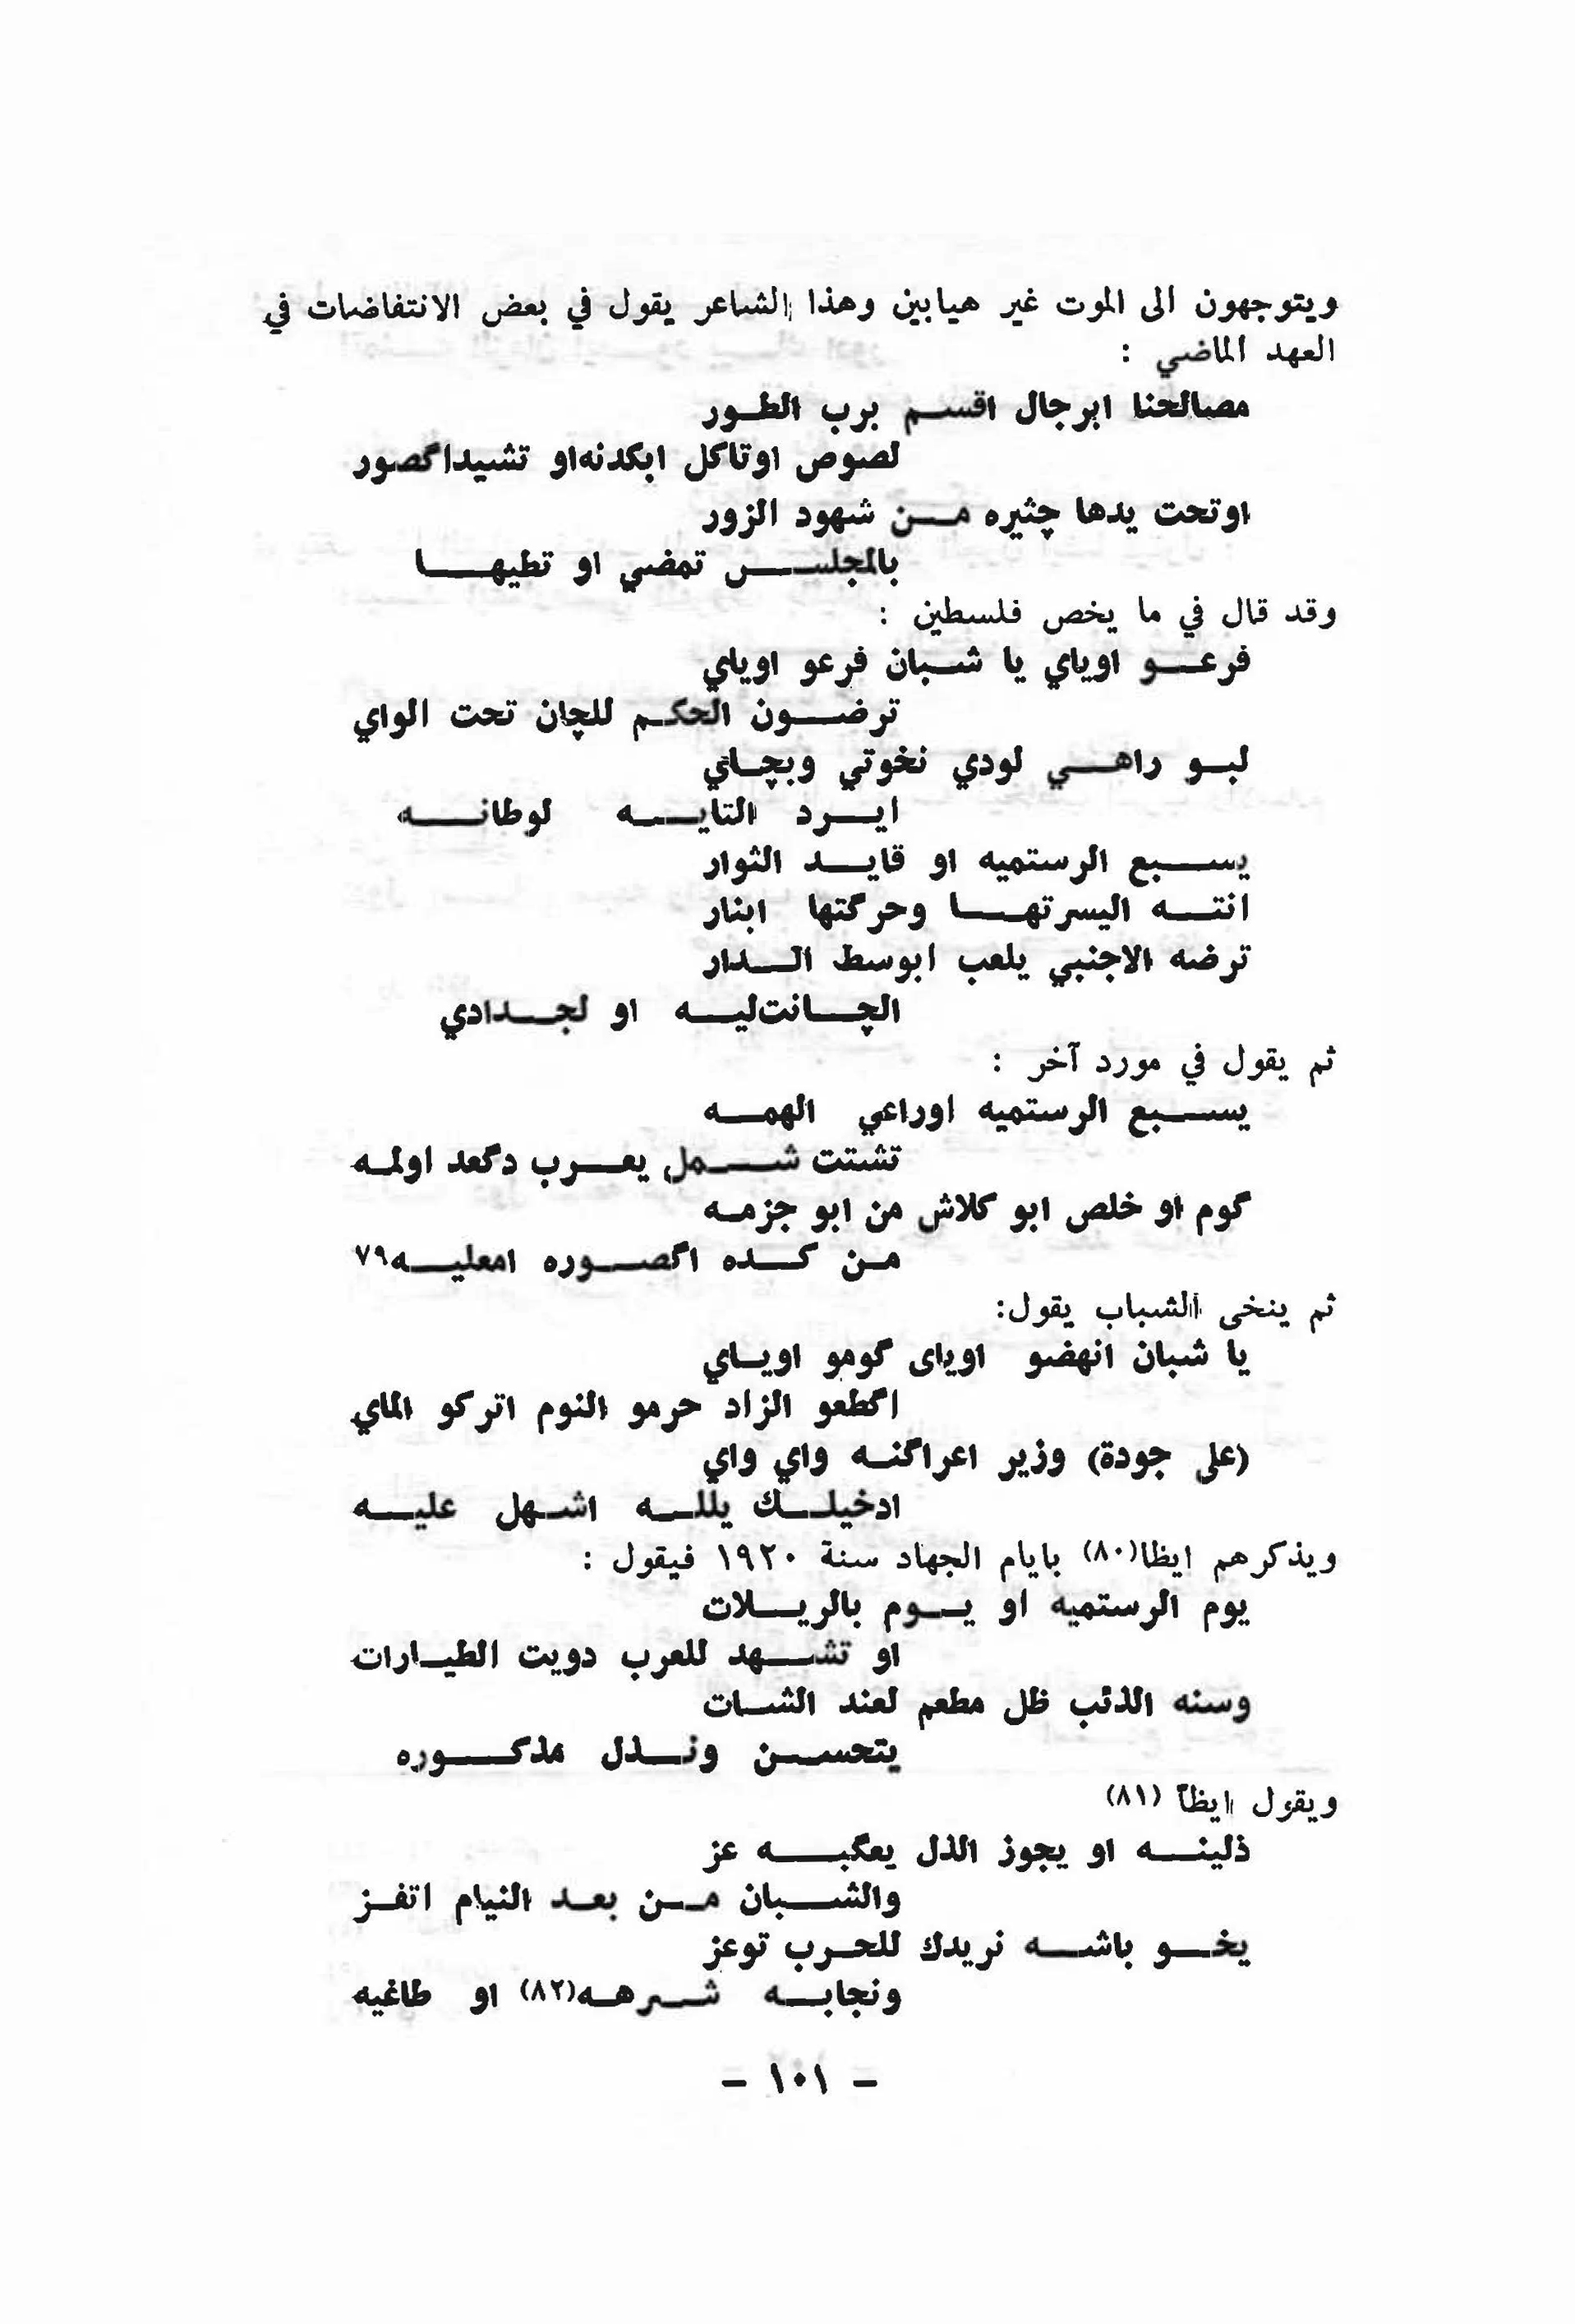 ويتوجهون الى الموت غير هيابين وهذا الشاعر يقول في بعض الانتفاضات في
العهد الماضي :
مصالحنا ابرجال اقسم برب الطور
لصوص اوتاكل ابكدنه او تشيد اگصور
اوتحت يدها چثيره من شهود الزور
بالمجلس تمضي او تطيها
وقد قال في ما يخص فلسطين :
فرعو اوياي يا شبان فرعو اوياي
ترضون الحكم للچان تحت الواي
لبو راهي لودي نخوتي وبچاي
ايرد التايه لوطانه
يسبع الرستميه او قايد الثوار
انته اليسرتها وحرگتها ابنار
ترضه الاجنبي يلعب ابوسط الدار
الچانت ليه او لجدادي
ثم يقول في مورد آخر :
يسبع الرستميه اوراعي الهمه
تشتت شمل يعرب دگعد اولمه
گوم او خلص ابو كلاش من ابو جزمه
من كده اگصوره امعليه٧٩
ثم ينخى الشباب يقول:
يا شبان انهضو اوياى گومو اوياي
اگطعو الزاد حرمو النوم اتركو الماي
(على جودة) وزير اعراگنه واي واي
ادخيلك يلله اشهل عليه
ويذكرهم ايظا(٨٠) بايام الجهاد سنة ١٩٢٠ فيقول :
يوم الرستميه او يوم بالريلات
او تشهد للعرب دويت الطيارات
وسنه الذئب ظل مطعم لعند الشات
يتحسن ونذل مذكوره
ويقول ايظآ (٨١)
ذلينه او يجوز الذل يعگبه عز
والشبان من بعد النيام اتفز
يخو باشه نريدك للحرب توعز
ونجابه شرهه(٨٢) او طاغيه
- ١٠١ -